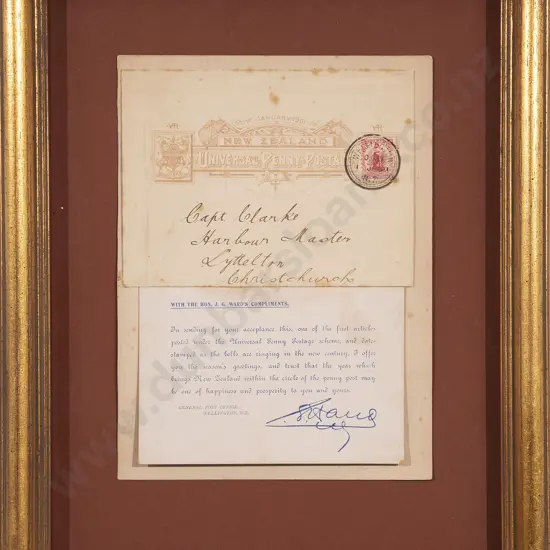 NEW ZEALAND
UNIVERSAL PENNY POSTAGE
Capt Clarke
Harbour Master
Lyttelton
Christchurch
WITH THE HON. J. G. WARD'S COMPLIMENTS.
In sending for your acceptance this, one of the first articles
posted under the Universal Penny Postage scheme, and date-
stamped as the bells are ringing in the new century, I offer
you the season's greetings, and trust that the year which
brings New Zealand within the circle of the penny post may
be one of happiness and prosperity to you and yours.
GENERAL POST OFFICE,
WELLINGTON, N.Z.
J G Ward